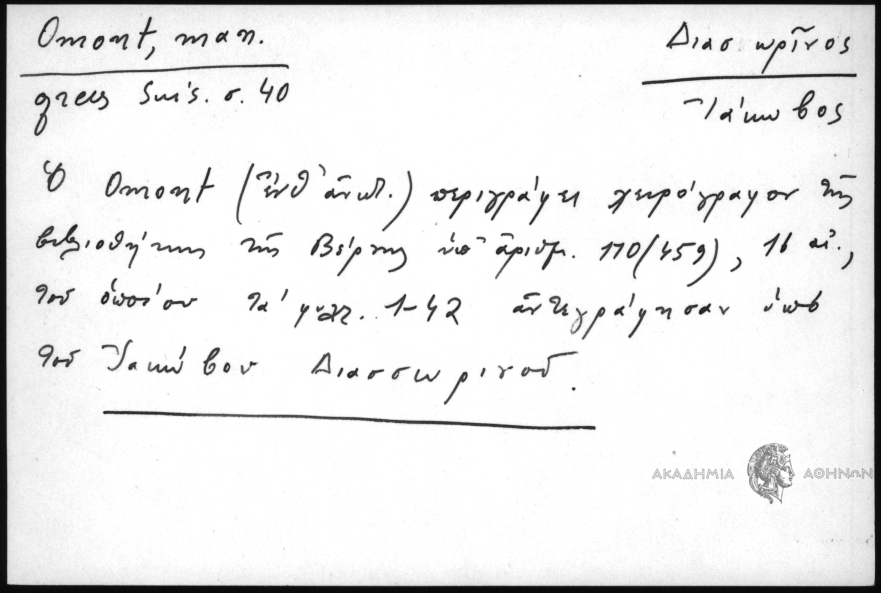 Omont, man.
grecs Suis. σ. 40
Διασωρῖνος
Ἰάκωβος
Ὁ Omont (ἔνθ' ἀνωτ.) περιγράφει χειρόγραφον τῆς
βιβλιοθήκης τῆς Βέρνης ὑπ' ἀριθμ. 110 (459), 16 αἰ.,
τοῦ ὁποίου τὰ φυλλ. 1-42 ἀντεγράφησαν ὑπὸ
τοῦ Ἰακώβου Διασσωρινοῦ.
ΑΚΑΔΗΜΙΑ ΑΘΗΝΩΝ